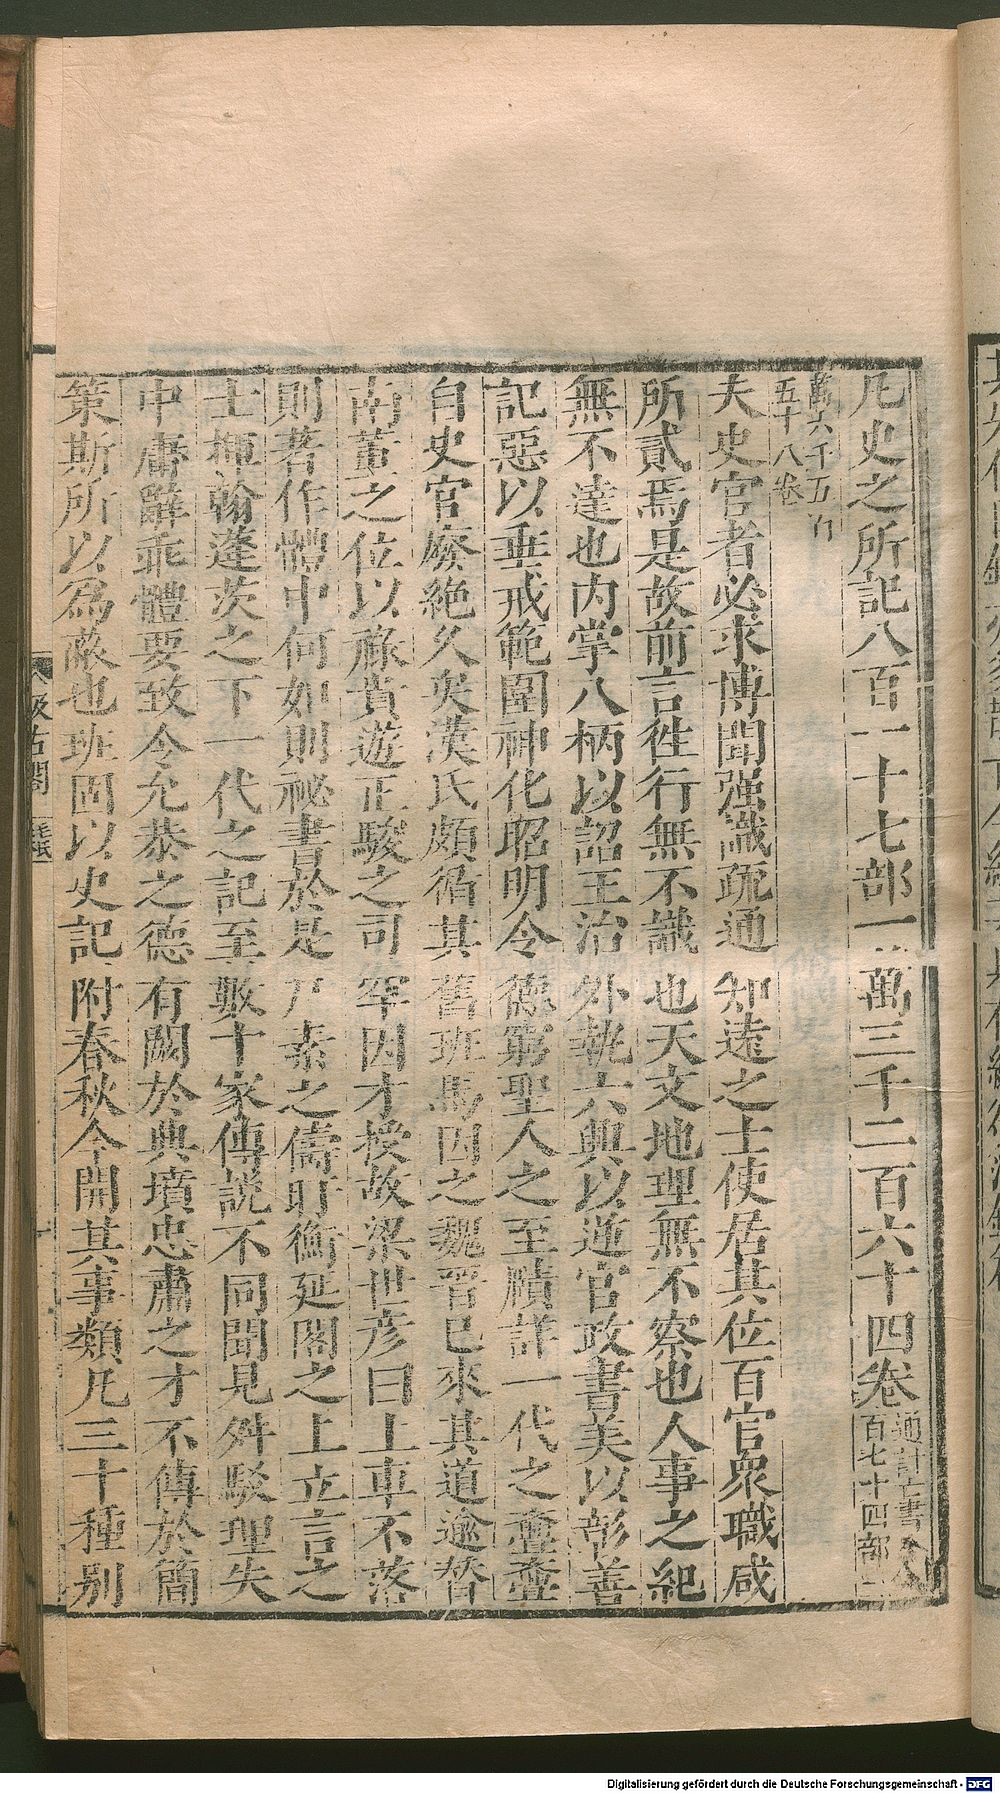 凡史之所記八百一十七部一萬三千二百六十四卷通計亡書合八百七十四部一
萬六千五百五十八卷
夫史官者必求博聞强識疏通知遠之士使居其位百官衆職咸
所貳焉是故前言徃行無不識也天文地理無不察也人事之紀
無不達也内掌八柄以詔王治外執六典以逆官政書美以彰善
記惡以垂戒範圍神化昭明令德窮聖人之至賾詳一代之亹亹
自史官廢絶久矣漢氏頗循其舊班馬因之魏晉已來其道逾替
南董之位以祿貴遊正駿之司罕因才授故梁世彦曰上車不落
則著作體中何如則祕書於是尸素之儔盱衡延閣之上立言之
士揮翰蓬茨之下一代之記至數十家傳説不同聞見舛駁理失
中庸辭乖體要致令允恭之德有闕於典墳忠肅之才不傳於簡
策斯所以為蔽也班固以史記附春秋今開其事類凡三十種别
汲古閣
毛氏
Digitalisierung gefördert durch die Deutsche Forschungsgemeinschaft - DFG